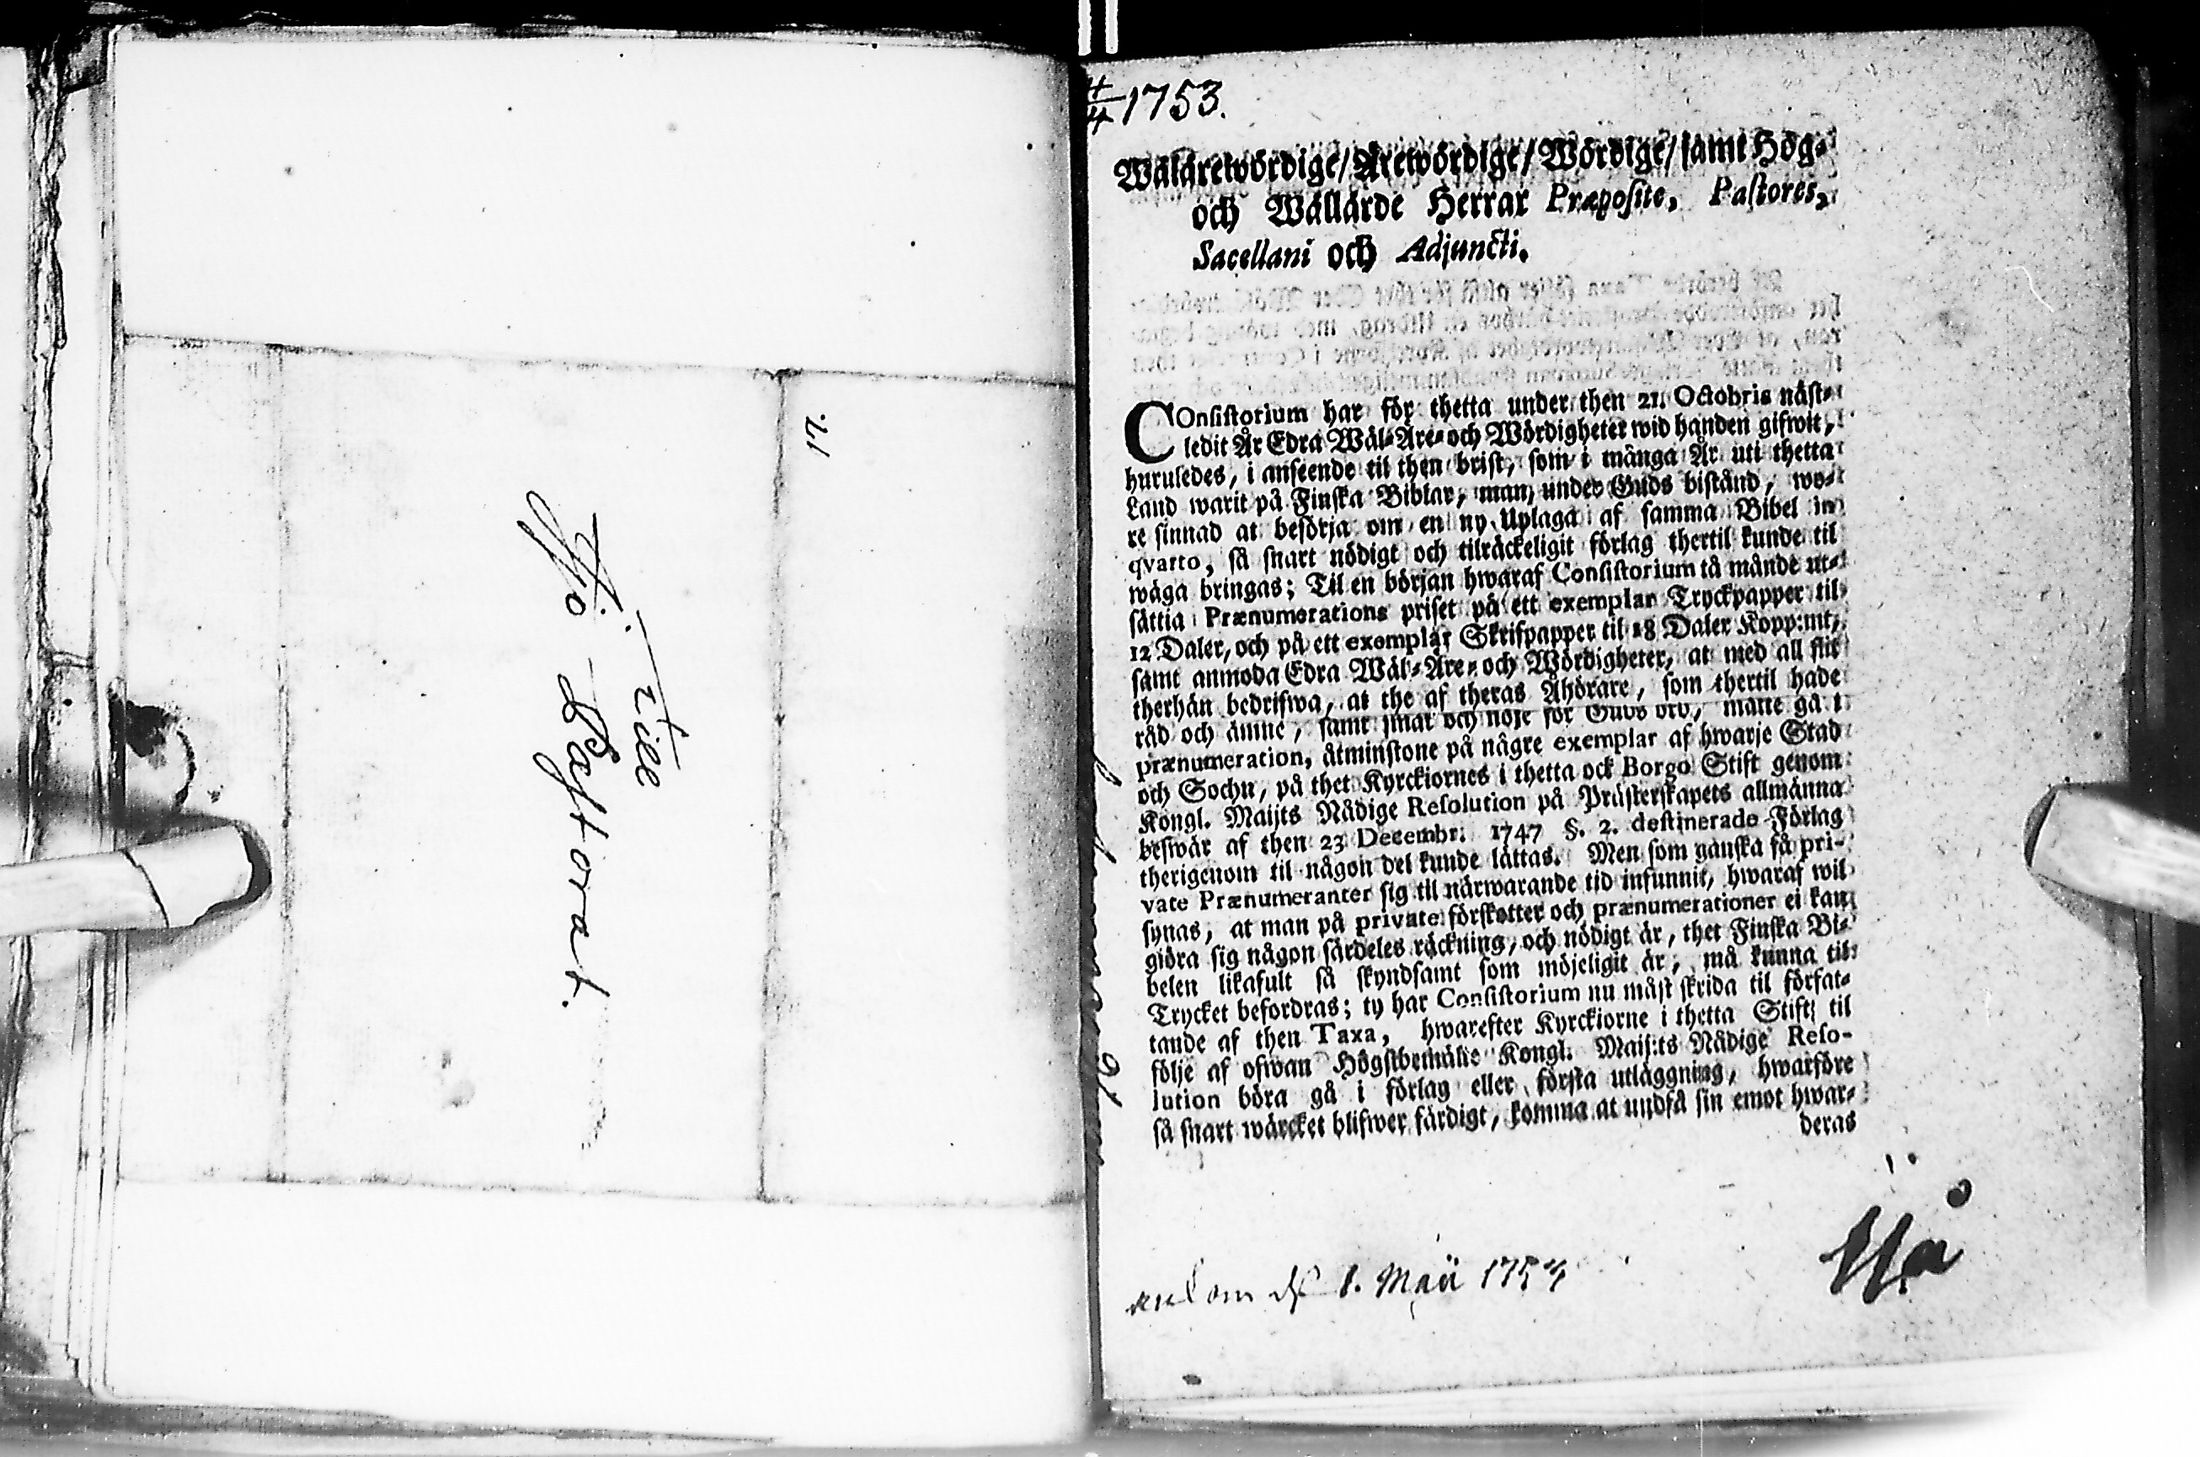 21
Till
Ijo Pastorat.
4/4 1753.
Wälärewördige/ Ärewördige/ Wördige/ samt Hög-
och Wällärde Herrar Præposite, Pastores,
Sacellani och Adjuncti.
COnsistorium har för thetta under then 21. Octobris näst-
ledit År Edra Wäl-Äre- och Wördigheter wid handen gifwit,
huruledes, i anseende til then brist, som i många År uti thetta
Land warit på Finska Biblar, man, under Guds bistånd, wo-
re sinnad at besörja om en ny Uplaga af samma Bibel in
qvarto, så snart nödigt och tilräckeligit förlag thertil kunde til
wäga bringas; Til en början hwaraf Consistorium tå månde ut-
sättia Prænumerations priset på ett exemplar Tryckpapper til
12 Daler, och på ett exemplar Skrifpapper til 18 Daler Kopp:mt,
samt anmoda Edra Wäl-Äre- och Wördigheter, at med all flit
therhän bedrifwa, at the af theras Åhörare, som thertil hade
råd och ämne, samt smak och nöje för Guds ord, måtte gå i
prænumeration, åtminstone på någre exemplar af hwarje Stad
och Sochn, på thet Kyrckiornes i thetta ock Borgo Stift genom
Kongl. Maijts Nådige Resolution på Prästerskapets allmänna
beswär af then 23 Decembr: 1747 §. 2. destinerade Förlag
therigenom til någon del kunde lättas. Men som ganska få pri-
vate Prænumeranter sig til närwarande tid infunnit, hwaraf wil
synas, at man på private förskotter och prænumerationer ei kan
giöra sig någon särdeles räckning, och nödigt är, thet Finska Bi-
belen likafult så skyndsamt som möjeligit är, må kunna til
Trycket befordras; ty har Consistorium nu måst skrida til förfat-
tande af then Taxa, hwarefter Kyrckiorne i thetta Stift til
följe af ofwan Högstbemälte Kongl. Maij:ts Nådige Reso-
lution böra gå i förlag eller första utläggning, hwarföre
så snart wärcket blifwer färdigt, komma at undfå sin emot hwar-
deras
ankom d. 1. Maii 1754